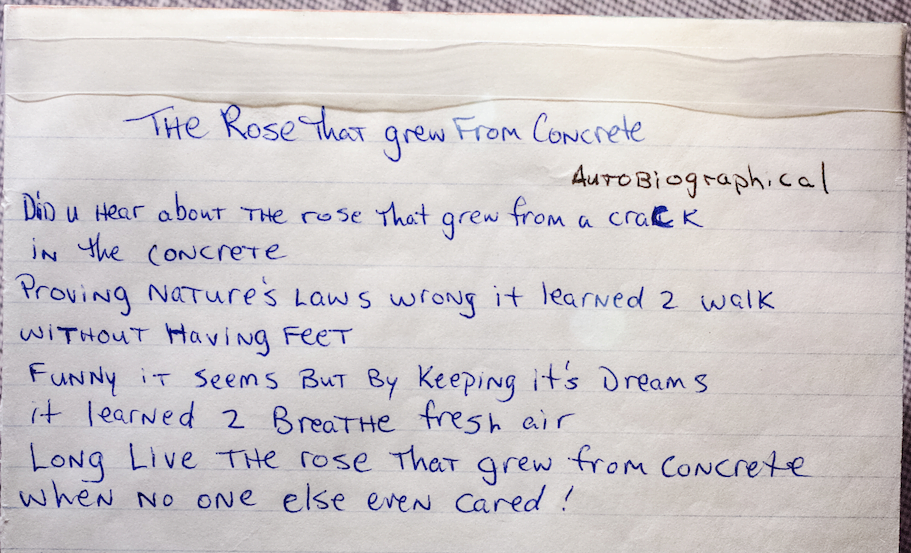 THE ROSE THAT grew From CONCRETE
AUTOBiographical
DiD u Hear about THE rose that grew from a craCK
iN the CONCRETE
Proving Nature's Laws wrong it learned 2 walk
WITHOUT Having FeeT
FUNNY iT Seems BUT By Keeping it's Dreams
it learned 2 BreaTHe fresh air
Long Live THE rose THaT grew from concrete
when no one else even cared!